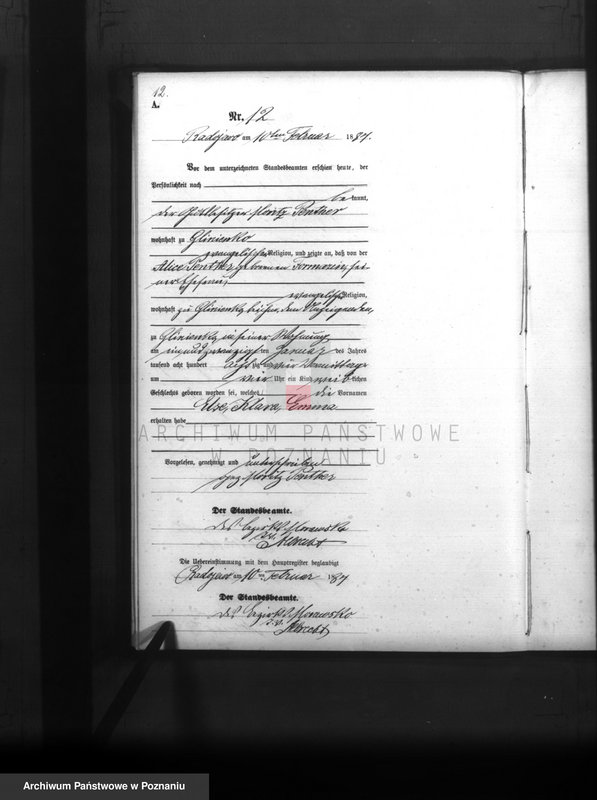 12.
A.
Nr. 12
Radojewo am 10ten Februar 1887.
Vor dem unterzeichneten Standesbeamten erschien heute, der
Persönlichkeit nach
bekannt,
der Gutsbesitzer Moritz Penther
wohnhaft zu Glinienko
evangelischer Religion, und zeigte an, daß von der
Alice Penther geborenen sei-
ner Ehefrau,
evangelischer Religion,
wohnhaft zu Glinienko bei ihm, dem Anzeigenden,
zu Glinienko in seiner Wohnung
am einundzwanzigsten Januar des Jahres
tausend acht hundert achtzig und Vormittags
um vier Uhr ein Kind weiblichen
Geschlechts geboren worden sei, welches die Vornamen
Else, Klara, Emma
erhalten habe
ARCHIWUM PAŃSTWOWE
W POZNANIU
Vorgelesen, genehmigt und unterschrieben
gez. Moritz Penther
Der Standesbeamte.
des Bezirks Morawsko
Albrecht
Die Uebereinstimmung mit dem Hauptregister beglaubigt
Radojewo am 10ten Februar 1887
Der Standesbeamte.
des Bezirks Morawsko
i.V.
Albrecht
Archiwum Państwowe w Poznaniu